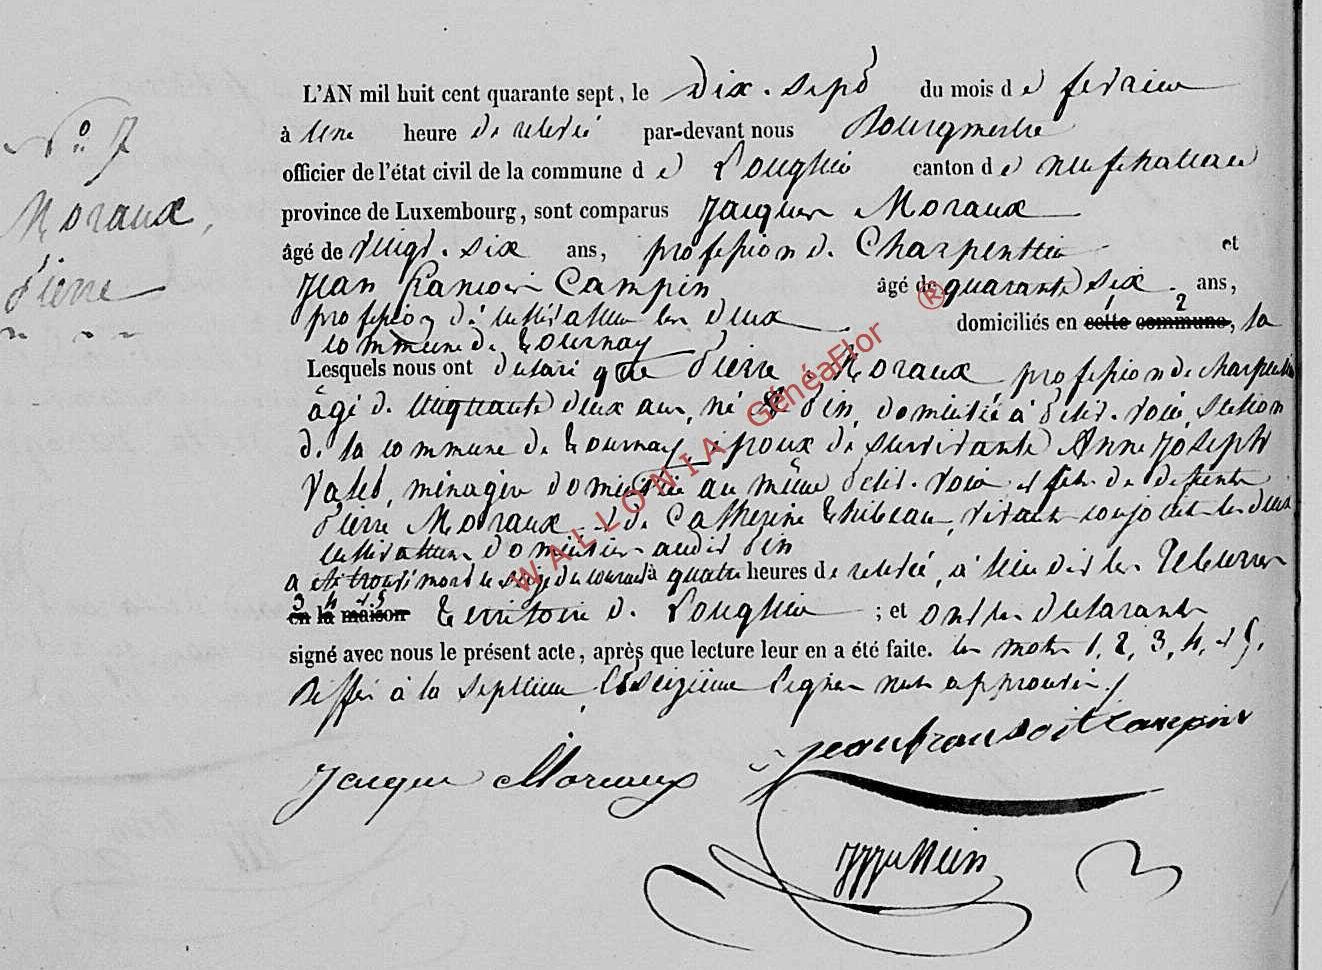 N° 7
Moraux,
Pierre
L'AN mil huit cent quarante sept, le dix-sept du mois de fevrier
à une heure de relevé par-devant nous Bourgmestre
officier de l'état civil de la commune de Longlier canton de neufchateau
province de Luxembourg, sont comparus Jacques Moraux
âgé de vingt-six ans, profession de Charpentier et
Jean François Campin âgé de quarante six ans,
profession de cultivateur les deux domiciliés en cette commune, 2 la
commune de Tournay
Lesquels nous ont declaré que Pierre Moraux profession de charpentier
âgé de cinquante deux ans, né à domicilié à petit-voir, section
de la commune de Tournay, époux de survivante Anne Joseph
Valet, ménagère domiciliée au même petit-voir et fils de defunts
Pierre Moraux et de Catherine Thibeau, vivants conjoints les deux
cultivateurs domiciliés audit
a été trouvé mort le seize du courant à quatre heures de relevée, à lieu dit les
3 4 et 5
en la maison territoire de Longlier ; et ont les declarants
signé avec nous le présent acte, après que lecture leur en a été faite. les mots 1, 2, 3, 4, et 5,
biffés à la septième, et seizième lignes nuls approuvés
jean fransoit campin
Jacque Moraux
WALLONIA GénéaFlor ®